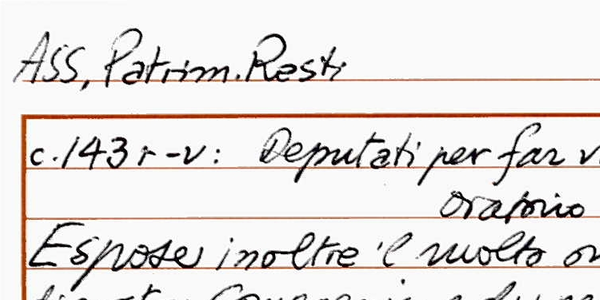 ASS, Patrim. Resti
c. 143 r-v: Deputati per far
oratorio
Espose inoltre il molto